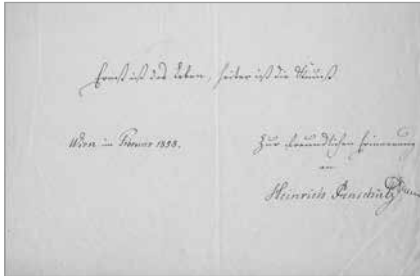 Ernst ist das Leben, heiter ist die Kunst
Wien im Februar 1858.
Zur freundlichen Erinnerung
an
Heinrich Anschütz